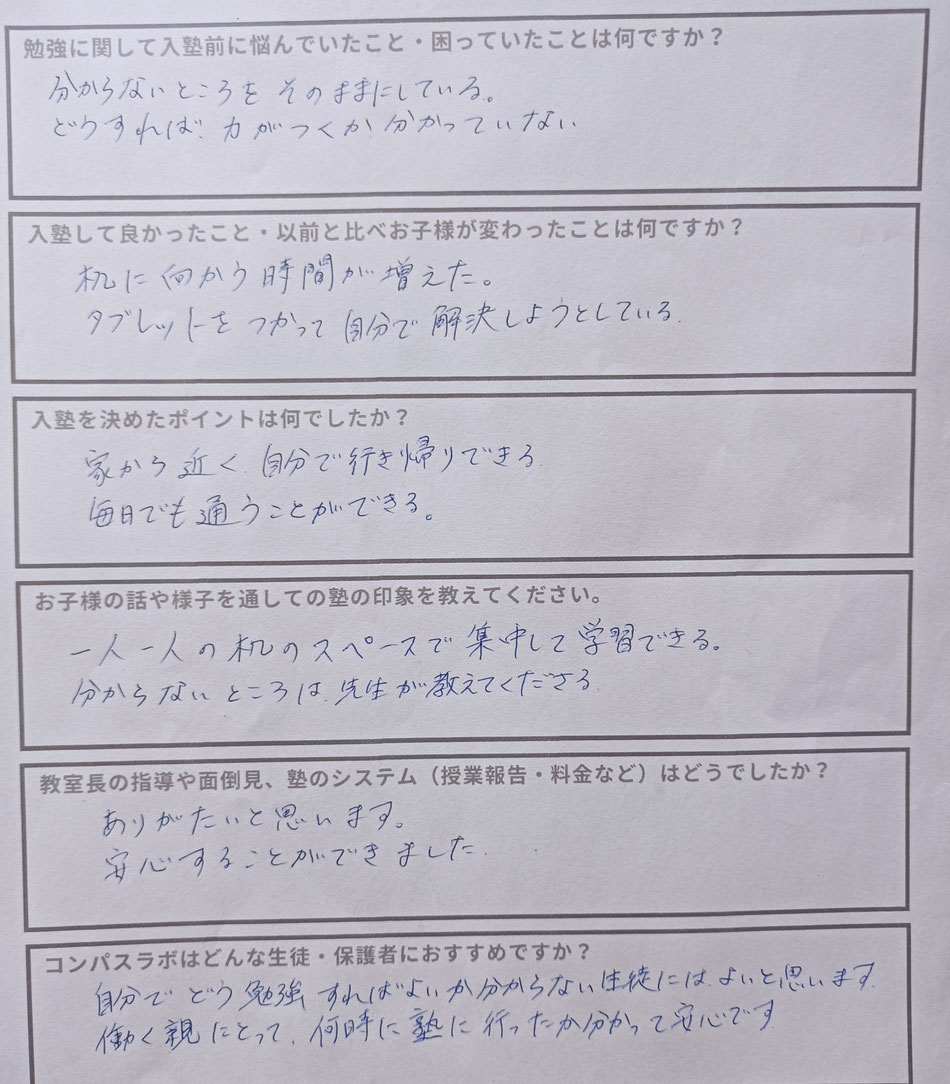 勉強に関して入塾前に悩んでいたこと・困っていたことは何ですか？
分からないところをそのままにしている。
どうすれば、力がつくか分かっていない
入塾して良かったこと・以前と比べお子様が変わったことは何ですか？
机に向かう時間が増えた。
タブレットをつかって自分で解決しようとしている.
入塾を決めたポイントは何でしたか？
家から近く、自分で行き帰りできる
毎日でも通うことができる。
お子様の話や様子を通しての塾の印象を教えてください。
一人一人の机のスペースで集中して学習できる。
分からないところは、先生が教えてくださる
教室長の指導や面倒見、塾のシステム（授業報告・料金など）はどうでしたか？
ありがたいと思います。
安心することができました.
コンパスラボはどんな生徒・保護者におすすめですか？
自分でどう勉強すればよいか分からない生徒には、よいと思います.
働く親にとって、何時に塾に行ったか分かって安心です